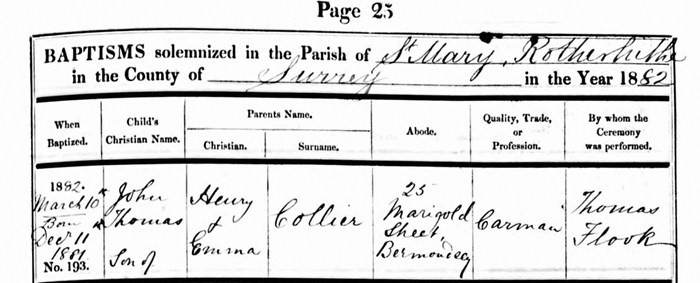 Page 25
BAPTISMS solemnized in the Parish of St Mary, Rotherhithe
in the County of Surrey in the Year 1882
When Baptized. Child's Christian Name. Parents Name. Abode. Quality, Trade, or Profession. By whom the Ceremony was performed.
Christian. Surname.
1882.
March 10
Born
Decr 11
1881
No. 193.
John
Thomas
Son of
Henry
&
Emma
Collier
25
Marigold
Street
Bermondsey
Carman
Thomas
Flook